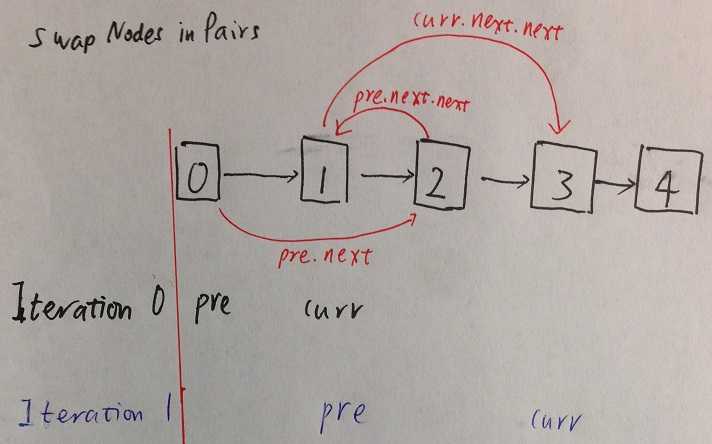 Swap Nodes in Pairs
curr.next.next
pre.next.next
0 1 2 3 4
pre.next
Iteration 0 pre curr
Iteration 1 pre curr